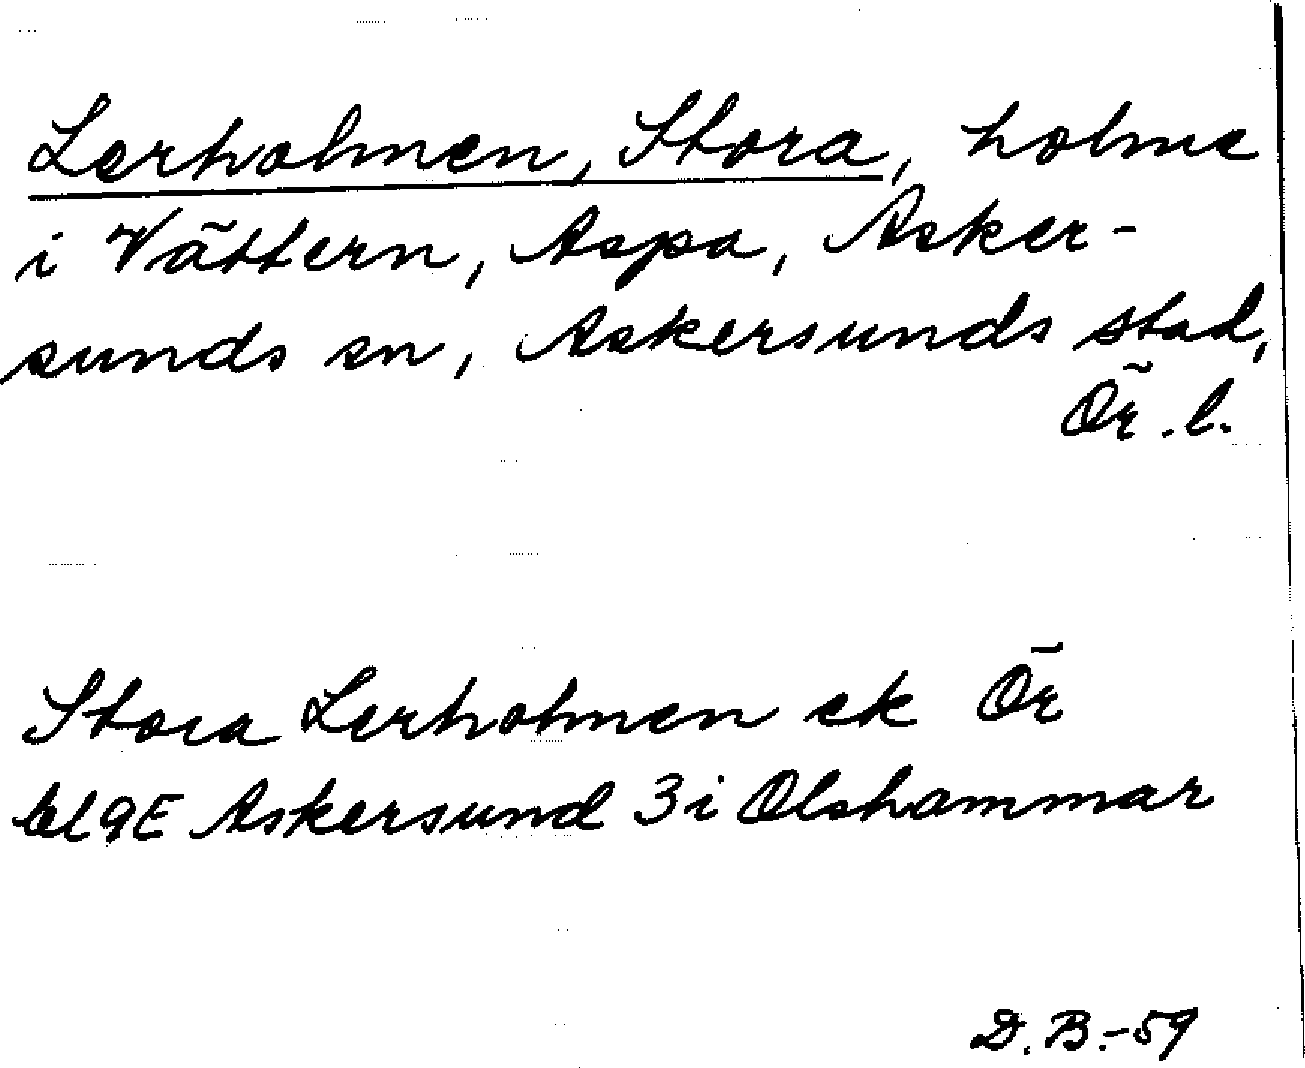 Lerholmen, Stora, holme
i Vättern, Aspa, Asker-
sunds sn, Askersunds stad,
Ör. l.
Stora Lerholmen ek Ör
bl 9E Askersund 3i Olshammar
D. B. -59